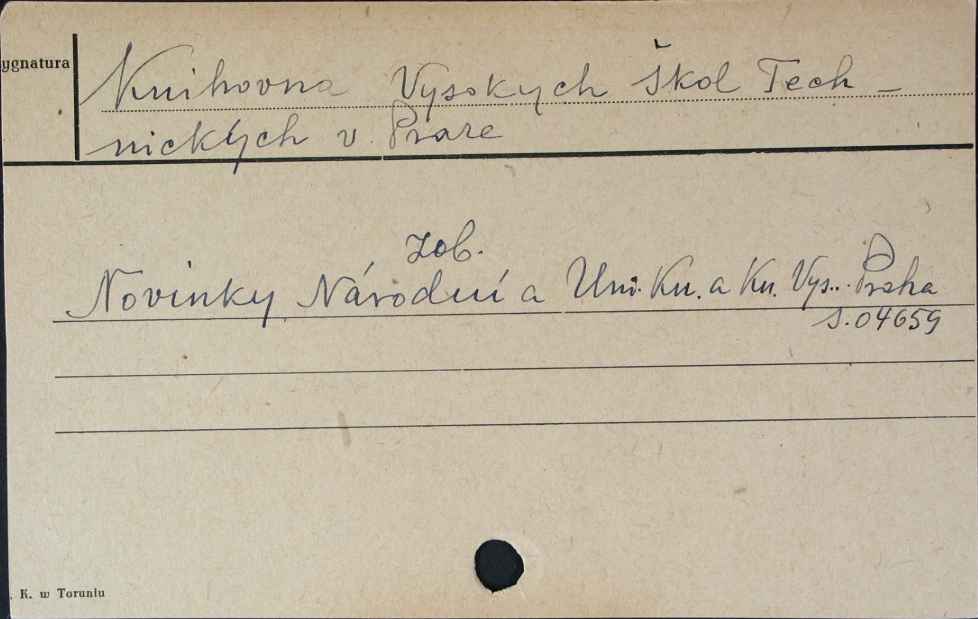 ygnatura
Knihovna Vysokych Škol Tech-
nických v Praze
zob.
Novinky Národní a Uni. Kn. a Kn. Vys.. Praha
S.04659
. K. w Toruniu